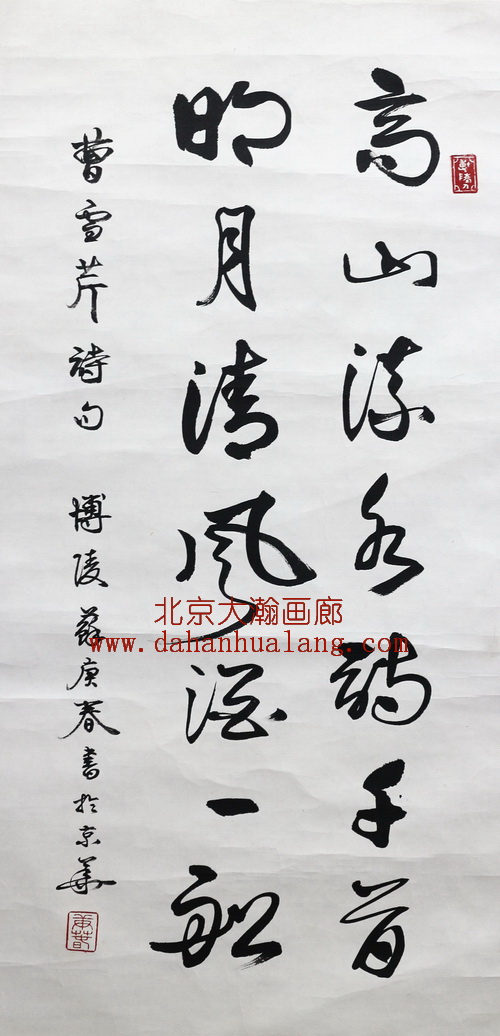 高山流水詩千首
明月清風酒一船
曹雪芹詩句 博陵蘇庚春書於京華
北京大瀚画廊
www.dahanhualang.com